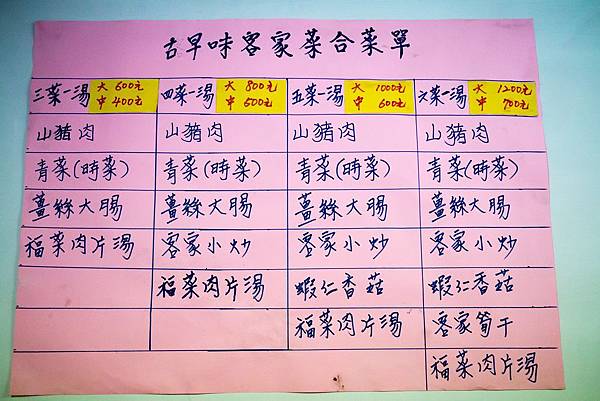 古早味客家菜合菜單
三菜一湯 大 600元 中 400元 四菜一湯 大 800元 中 500元 五菜一湯 大 1000元 中 600元 六菜一湯 大 1200元 中 700元
山豬肉 山豬肉 山豬肉 山豬肉
青菜(時菜) 青菜(時菜) 青菜(時菜) 青菜(時菜)
薑絲大腸 薑絲大腸 薑絲大腸 薑絲大腸
福菜肉片湯 客家小炒 客家小炒 客家小炒
福菜肉片湯 蝦仁香菇 蝦仁香菇
福菜肉片湯 客家筍干
福菜肉片湯